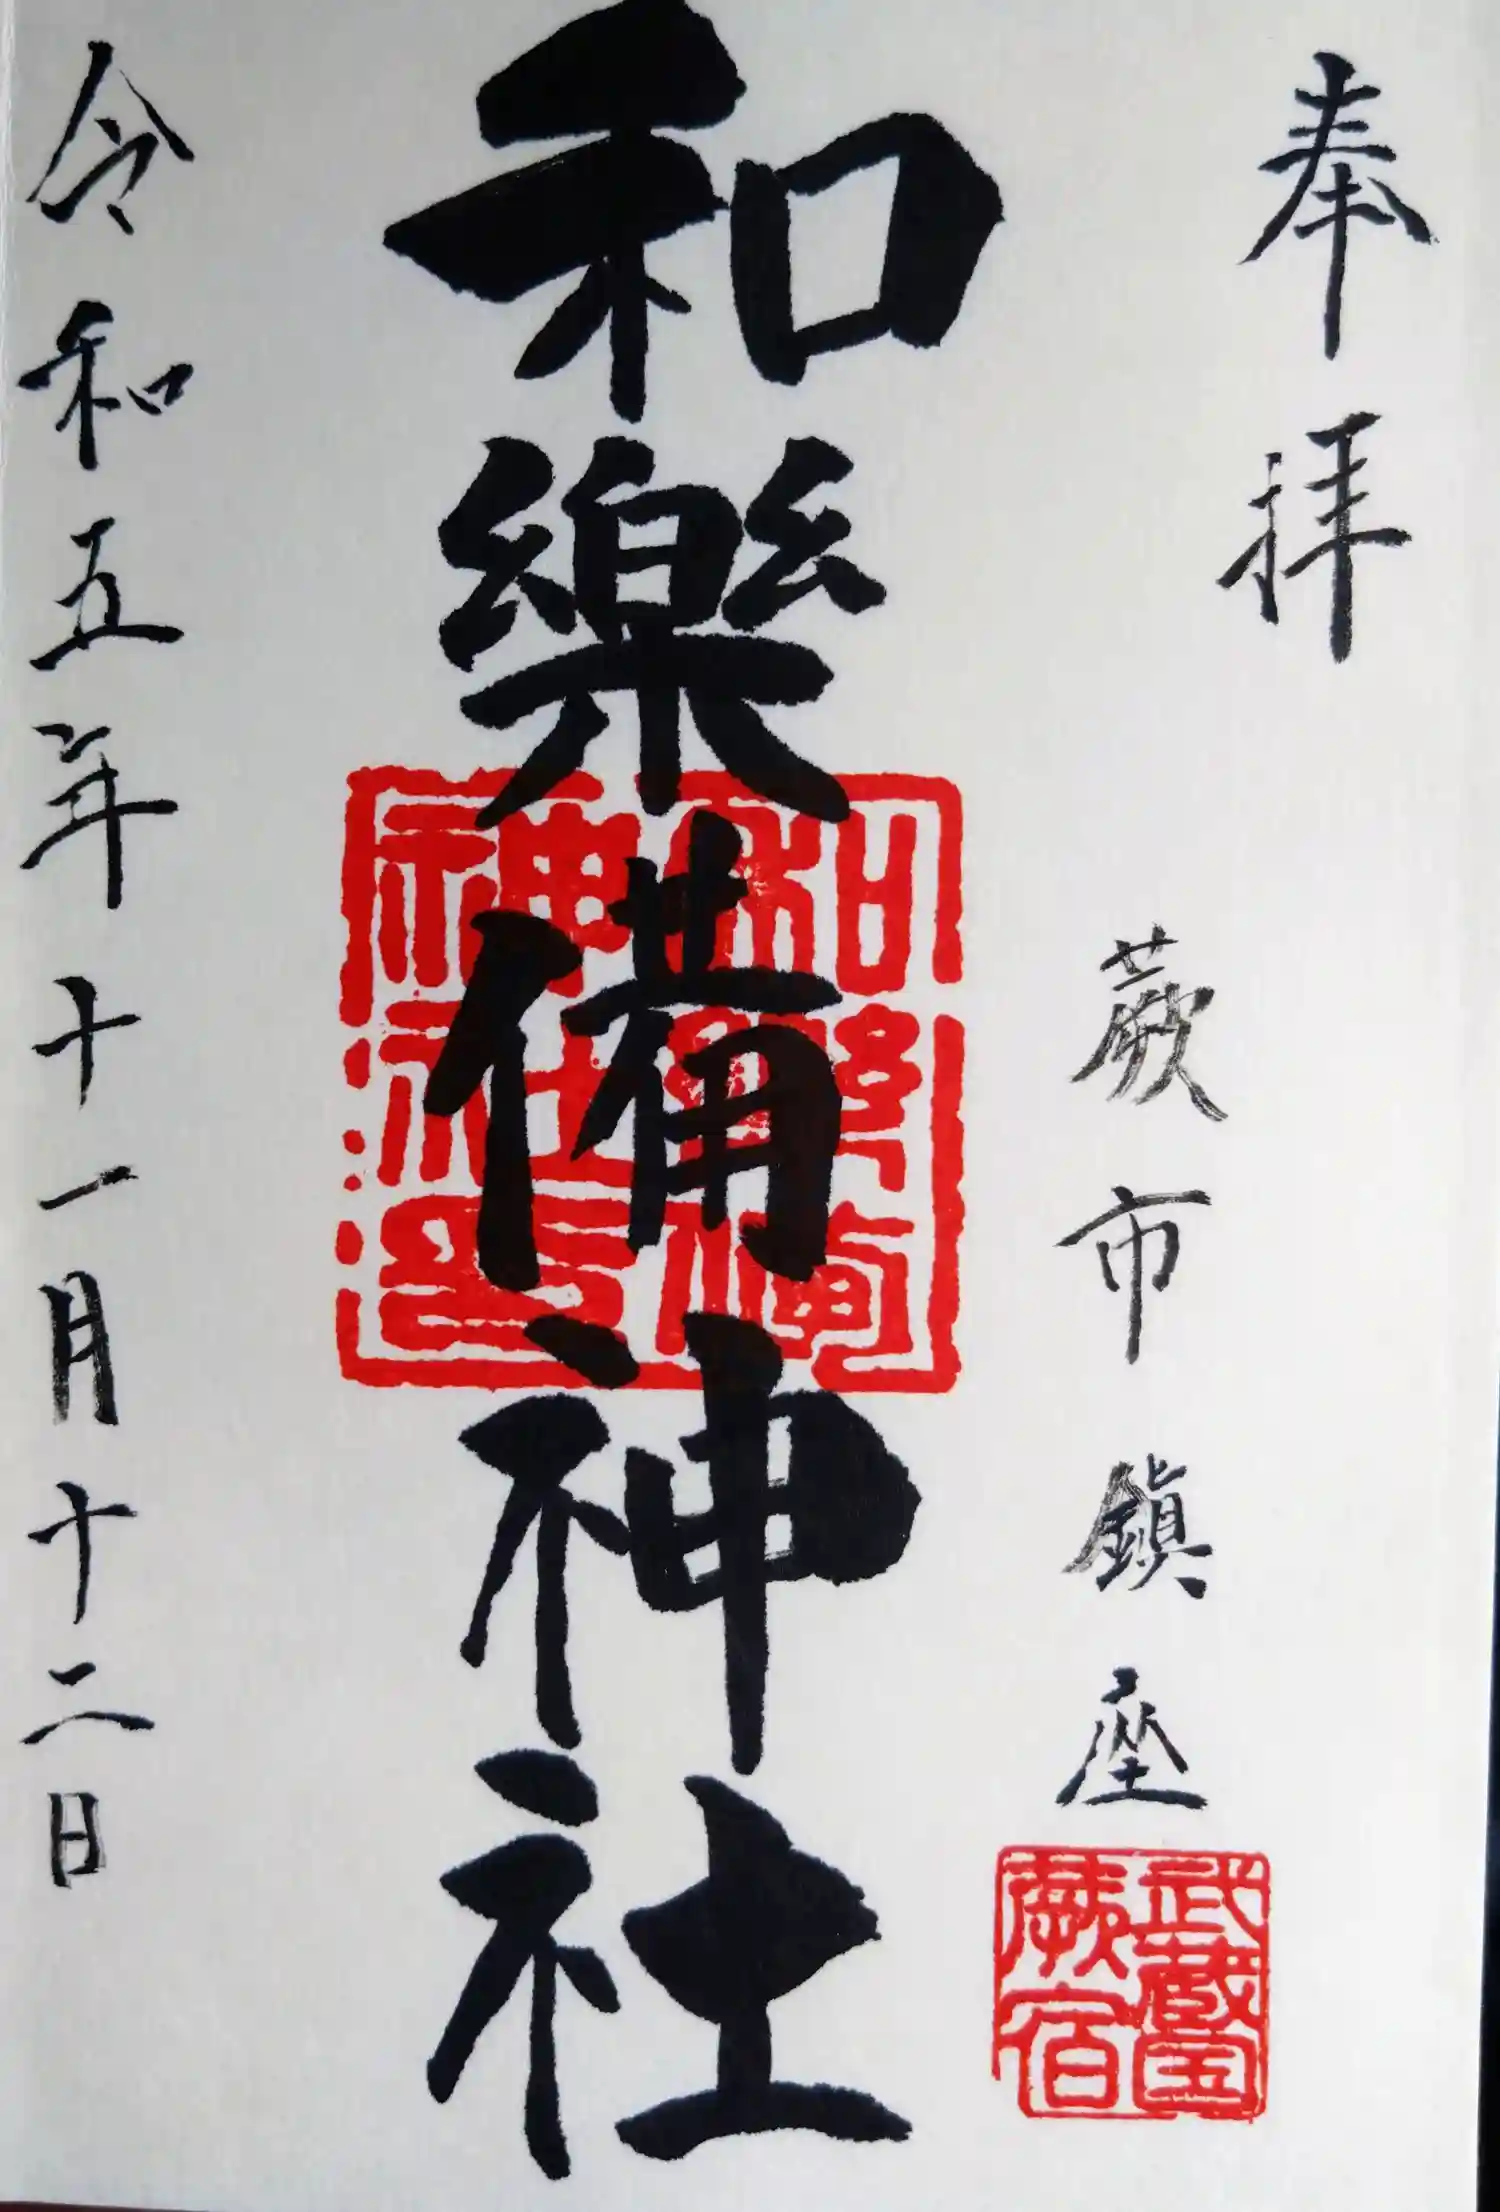 奉拝
蕨市鎮座
武蔵国
蕨宿
和樂備神社
和樂備
神社印
令和五年十一月十二日